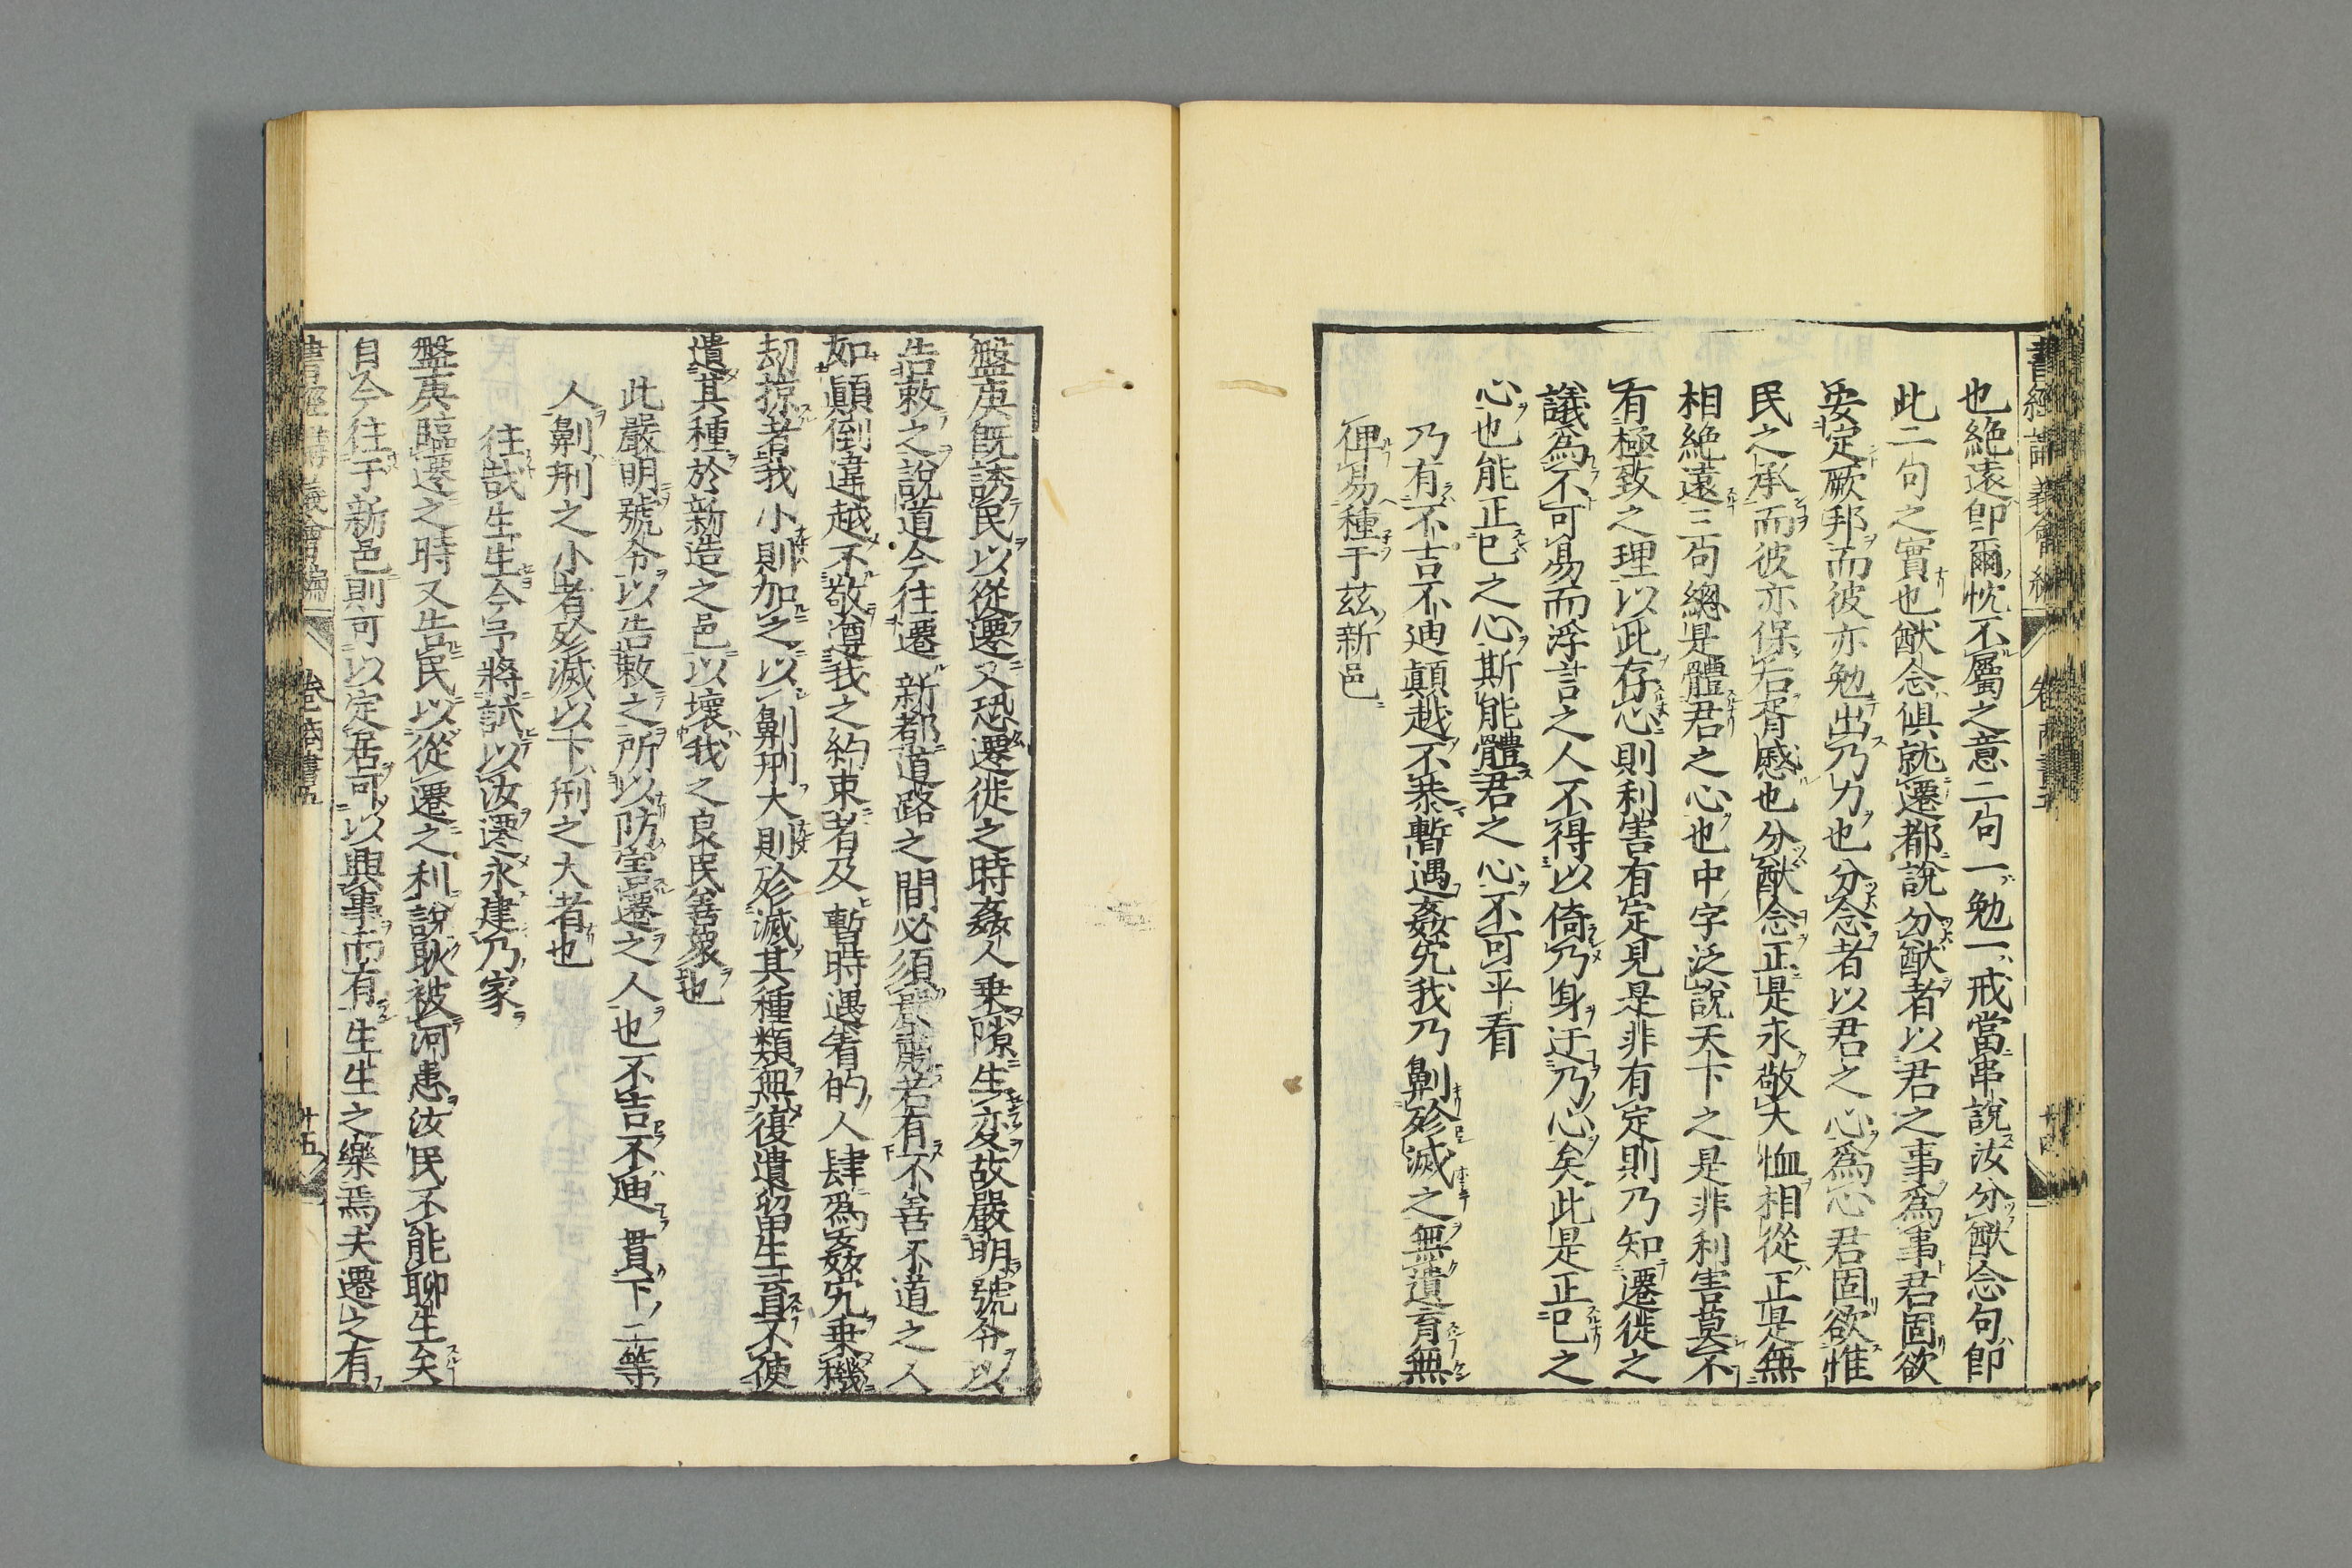 書經講義會編 卷 商書五 十四
也絶遠卽爾忱不屬之意二句一勉一戒當串說汝分猷念句卽
此二句之實也猷念俱就遷都說分猷者以君之事爲事君固欲
安定厥邦而彼亦勉出乃力也分念者以君之心爲心君固欲惟
民之承而彼亦保后胥慼也分猷念正是永敬大恤相從正是無
相絶遠三句緫是體君之心也中字泛說天下之是非利害莫不
有極致之理以此存心則利害有定見是非有定則乃知遷徙之
議爲不可易而浮言之人不得以倚乃身迂乃心矣此是正已之
心也能正已之心斯能體君之心不可平看
乃有不吉不迪顚越不恭暫遇姦宄我乃劓殄滅之無遺育無
俾易種于茲新邑
盤庚旣誘民以從遷又恐遷徙之時姦人乗隙生変故嚴明號令以
告敕之說道今往遷新都道路之間必須嚴肅若有不善不道之人
如顚倒違越不敬遵我之約束者及暫時遇着的人肆爲姦宄乗機
刼掠者我小則加之以劓刑大則殄滅其種類無復遺留生育不使
遺其種於新造之邑以壞我之良民善衆也
此嚴明號令以告敕之所以防害遷之人也不吉不迪貫下二等
人劓刑之小者殄滅以下刑之大者也
往哉生生今予將試以汝遷永建乃家
盤庚臨遷之時又告民以從遷之利說耿被河患汝民不能聊生矣
自今往于新邑則可以定居可以興事而有生生之樂焉夫遷之有
書經講義會編 卷 商書五 十五